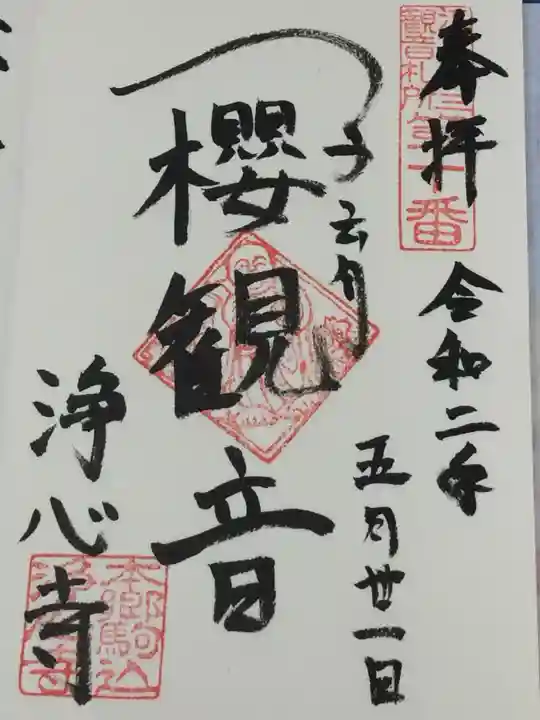 奉拝
江戸三十三観音札所第十番
令和二年
五月廿一日
櫻観音
浄心寺
本郷駒込
浄心寺